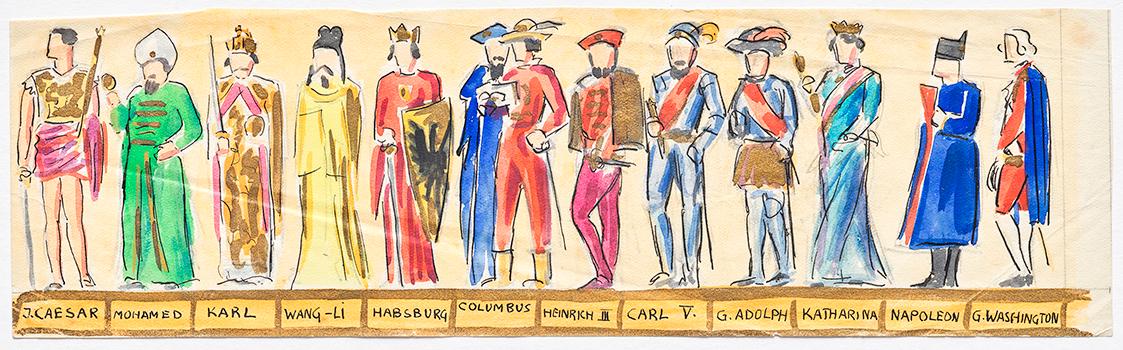 J. CAESAR
MOHAMED
KARL
WANG-LI
HABSBURG
COLUMBUS
HEINRICH III
CARL V.
G. ADOLPH
KATHARINA
NAPOLEON
G. WASHINGTON